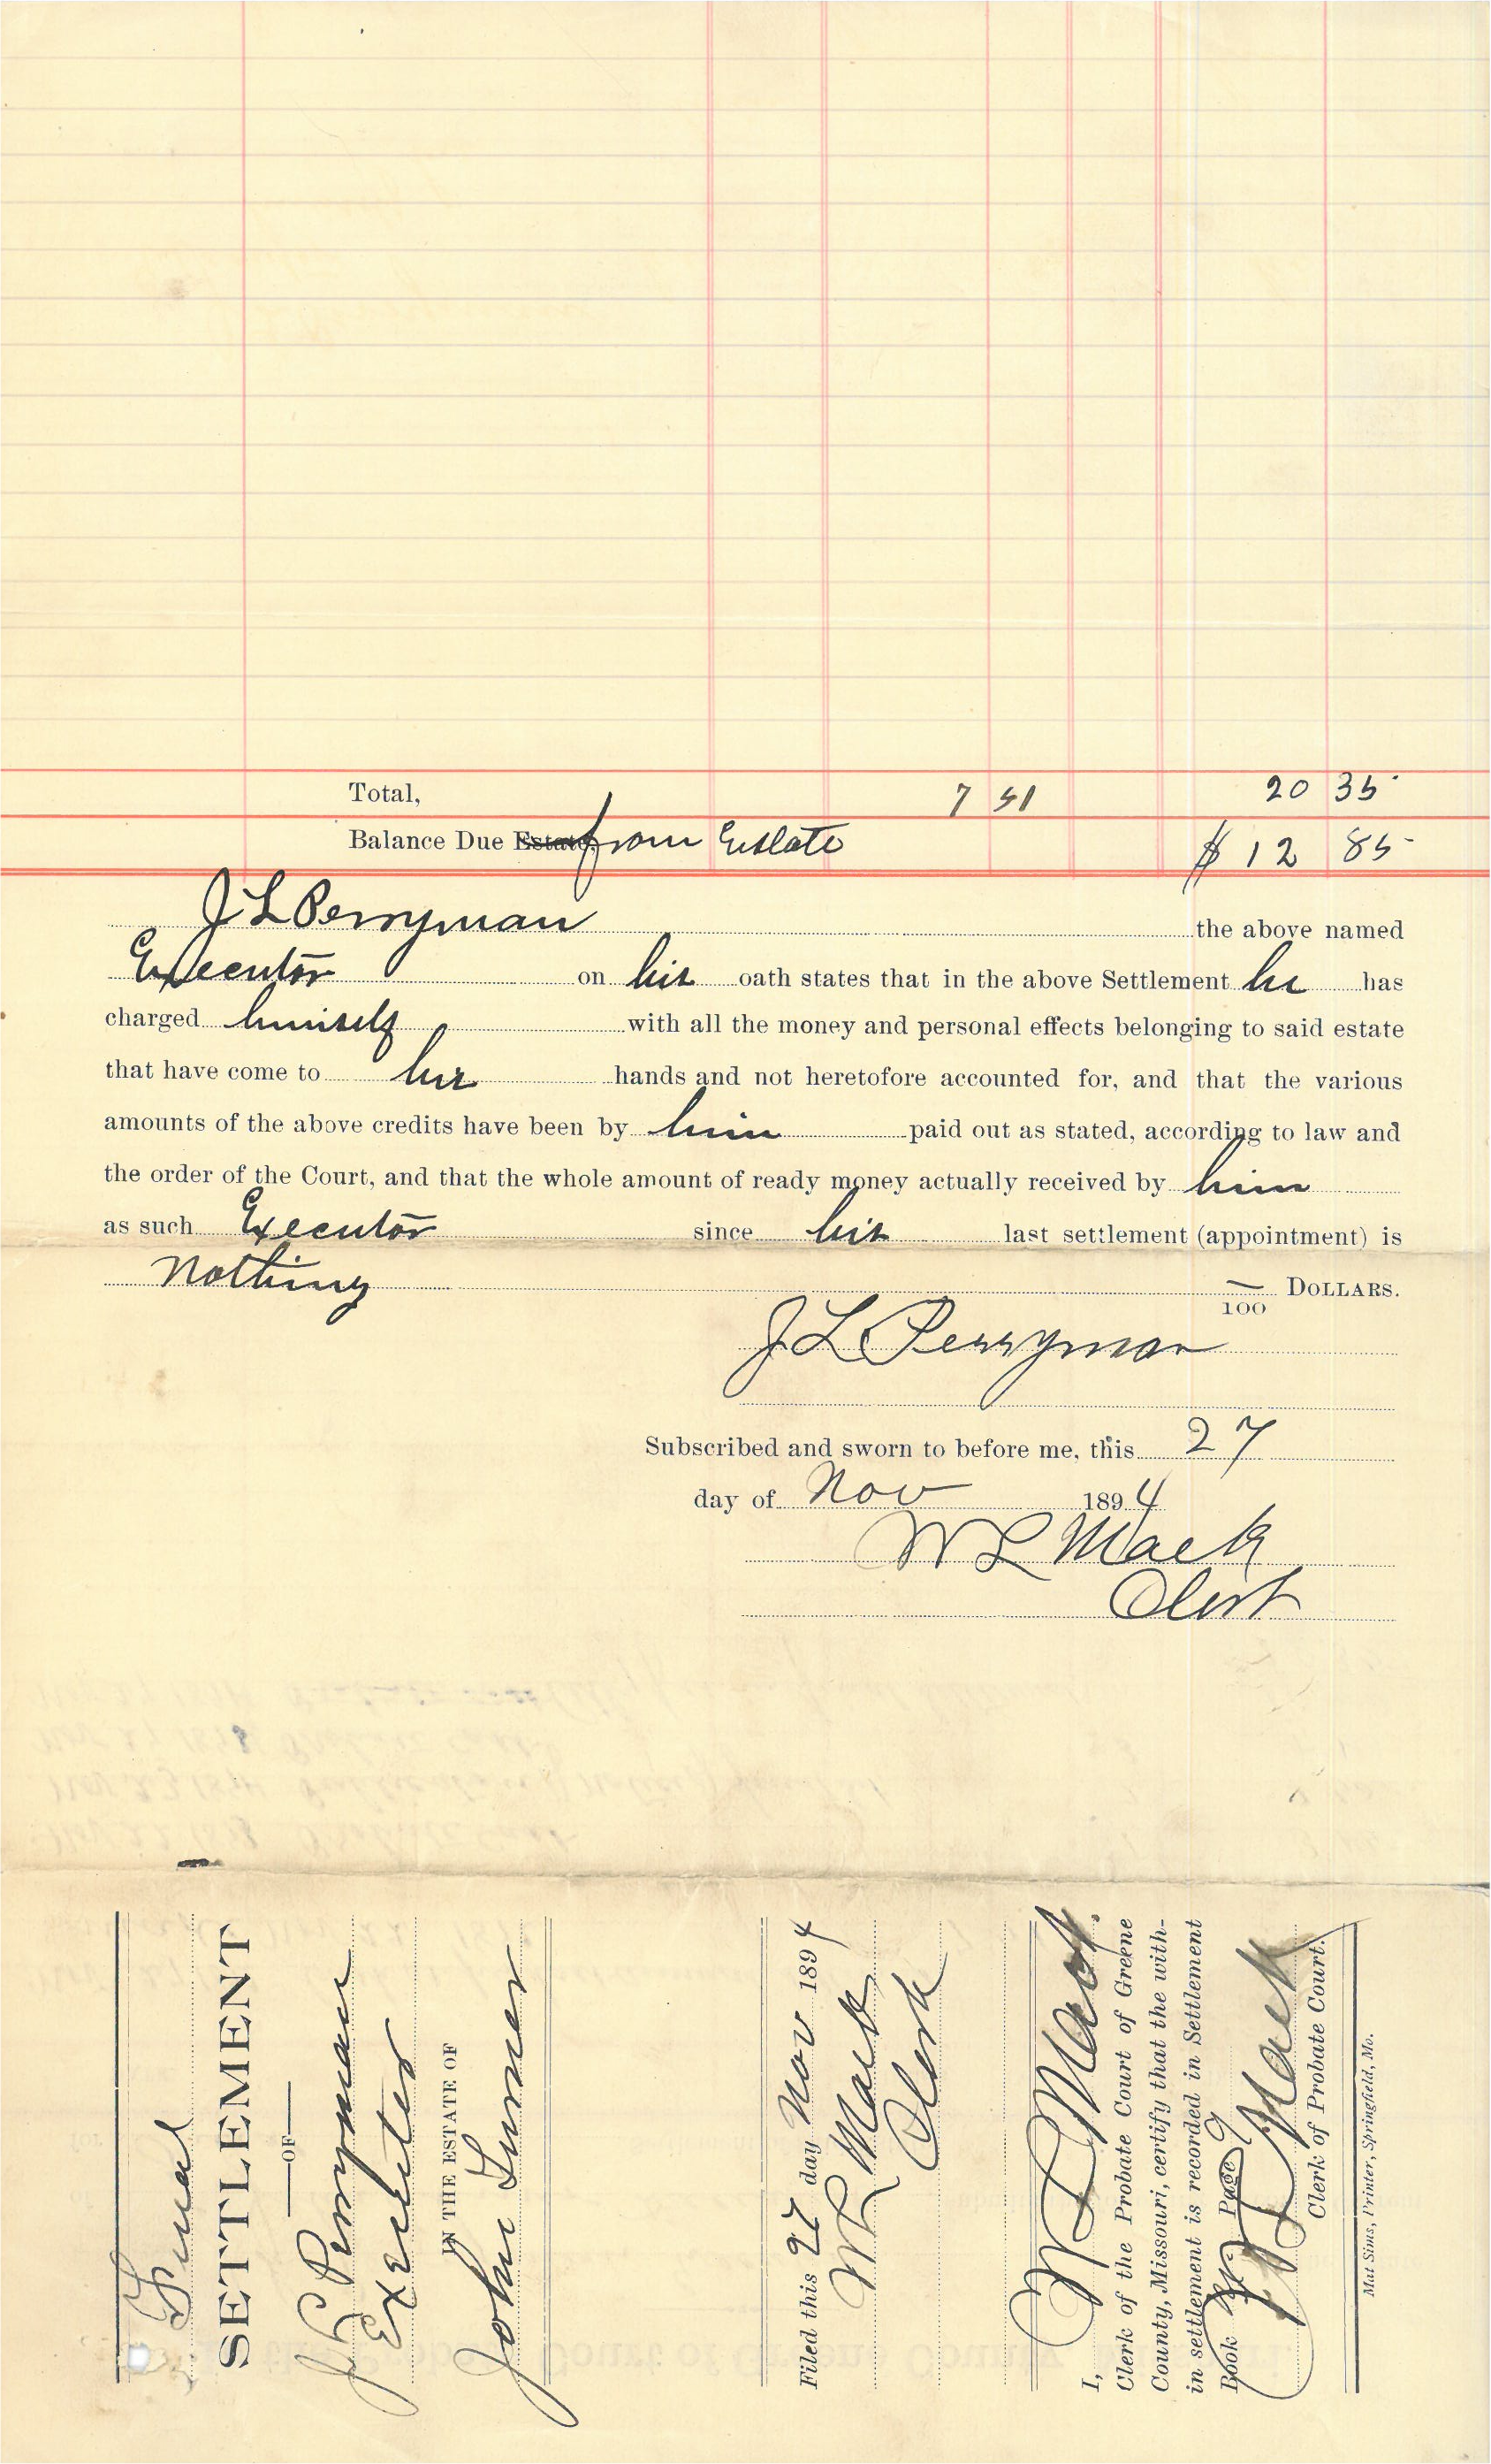 Total, 7 51 20 35
Balance Due Estate, from Estate $ 12 85
J L Perryman the above named
Executor on his oath states that in the above Settlement he has
charged himself with all the money and personal effects belonging to said estate
that have come to his hands and not heretofore accounted for, and that the various
amounts of the above credits have been by him paid out as stated, according to law and
the order of the Court, and that the whole amount of ready money actually received by him
as such Executor since his last settlement (appointment) is
Nothing — DOLLARS.
100
J L Perryman
Subscribed and sworn to before me, this 27
day of Nov 1894
W L Mack
Clerk
Final
SETTLEMENT
—OF—
J L Perryman
Executor
IN THE ESTATE OF
John Turner
Filed this 27 day Nov 1894
W L Mack
Clerk
I, W L Mack.
Clerk of the Probate Court of Greene
County, Missouri, certify that the with-
in settlement is recorded in Settlement
Book Page
W L Mack
Clerk of Probate Court.
Mat Sims, Printer, Springfield, Mo.